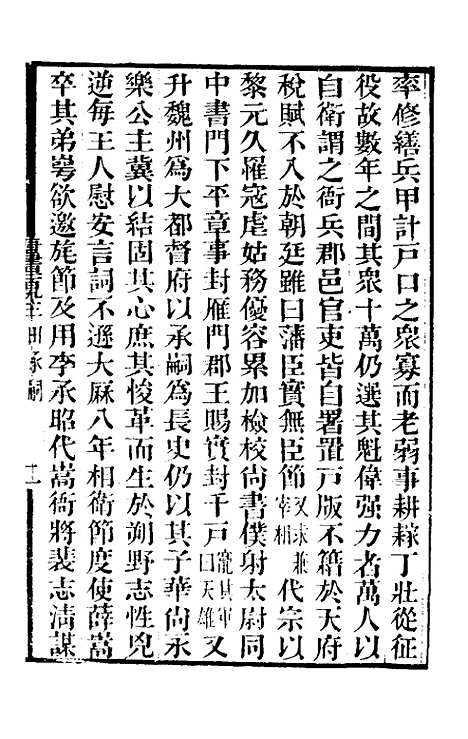 率修繕兵甲計戸口之衆寡而老弱事耕稼丁壯從征
役故數年之間其衆十萬仍選其魁偉强力者萬人以
自衛謂之衙兵郡邑官吏皆自署置戸版不籍於天府
稅賦不入於朝廷雖曰藩臣實無臣節又求兼宰相代宗以
黎元久罹寇虐姑務優容累加檢校尚書僕射太尉同
中書門下平章事封雁門郡王賜實封千戸寵其軍曰天雄又
升魏州爲大都督府以承嗣爲長史仍以其子華尚永
樂公主冀以結固其心庶其悛革而生於朔野志性兇
逆每王人慰安言詞不遜大麻八年相衛節度使薛嵩
卒其弟㟧欲邀旄節及用李承昭代嵩衙將裴志淸謀
田承嗣